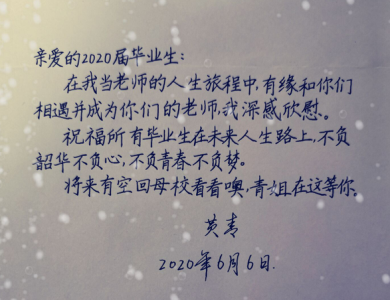 亲爱的2020届毕业生:
在我当老师的人生旅程中,有缘和你们
相遇并成为你们的老师,我深感欣慰。
祝福所有毕业生在未来人生路上,不负
韶华不负心,不负青春不负梦。
将来有空回母校看看噢,青姐在这等你。
黄青
2020年6月6日.